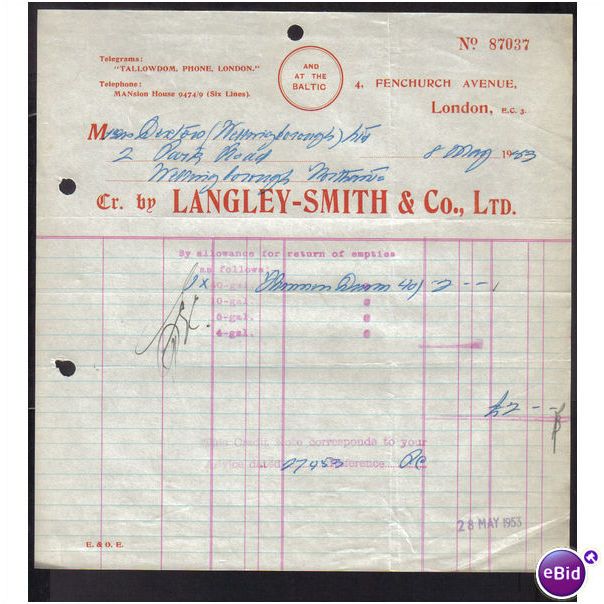 Nº 87037
Telegrams:
"TALLOWDOM, PHONE, LONDON."
Telephone:
MANsion House 9474/9 (Six Lines).
AND
AT THE
BALTIC
4, FENCHURCH AVENUE,
London, E.C. 3.
(Wellingborough) Ltd
2 Park Road
8 May 1953
Wellingborough Northants
Cr. by LANGLEY-SMITH & Co., LTD.
By allowance for return of empties
as follows.
1 x 40-gal. Drum 40/ 2 - -
10-gal. @
5-gal. @
4-gal. @
£2 - -
This Credit Note corresponds to your
Advice dated 27453 Reference
28 MAY 1953
E. & O. E.
eBid